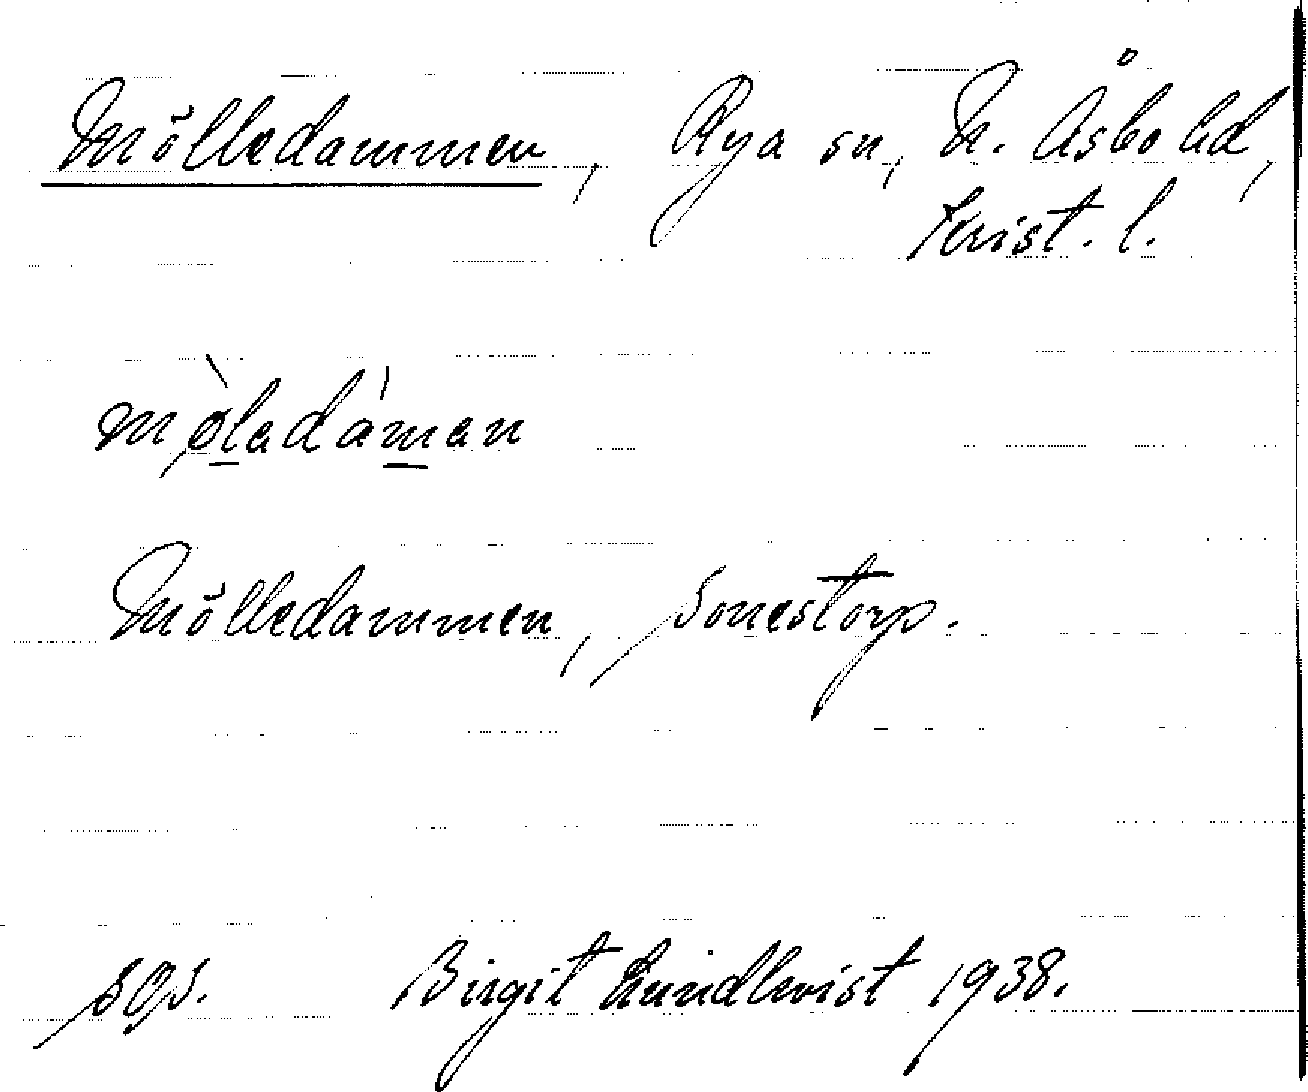 Mölledammen, Rya sn, N. Åsbo hd,
Krist. l.
mø̀ladáman
Mölledammen, Sonestorp.
sgs. Birgit Lundkvist 1938.